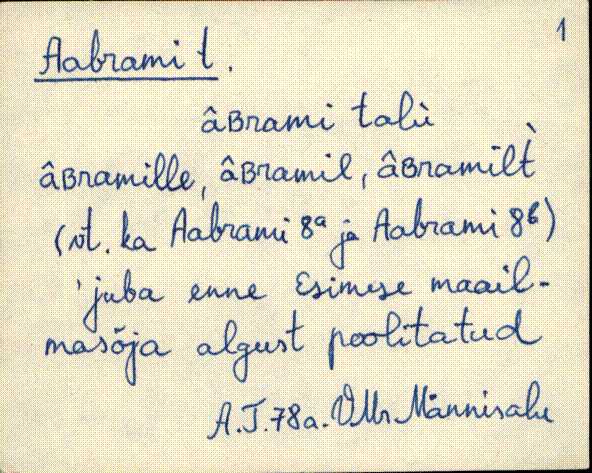 1
Aabrami t.
âʙrami talù
âʙramille, âʙramil, âʙramilt̀
(vt. ka Aabrami 8ª ja Aabrami 8ᵇ)
'juba enne Esimese maail-
masõja algust poolitatud
A.T.78a. VMr Männisalu